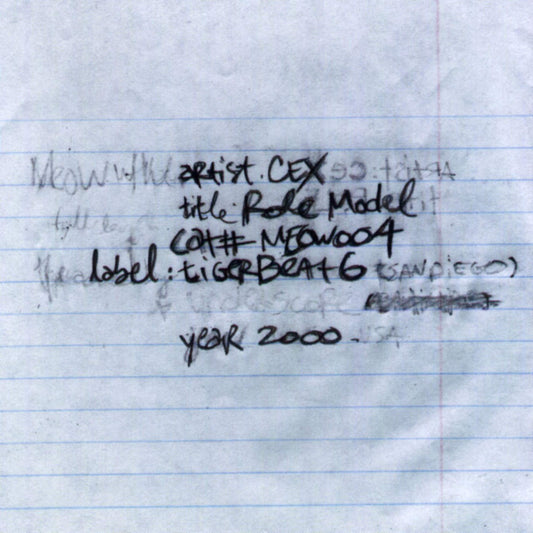 artist. CEX
title: Role Model
Cat# MEOW004
label: tiGERBEAt6 (SANDiEGO)
year 2000.
USA